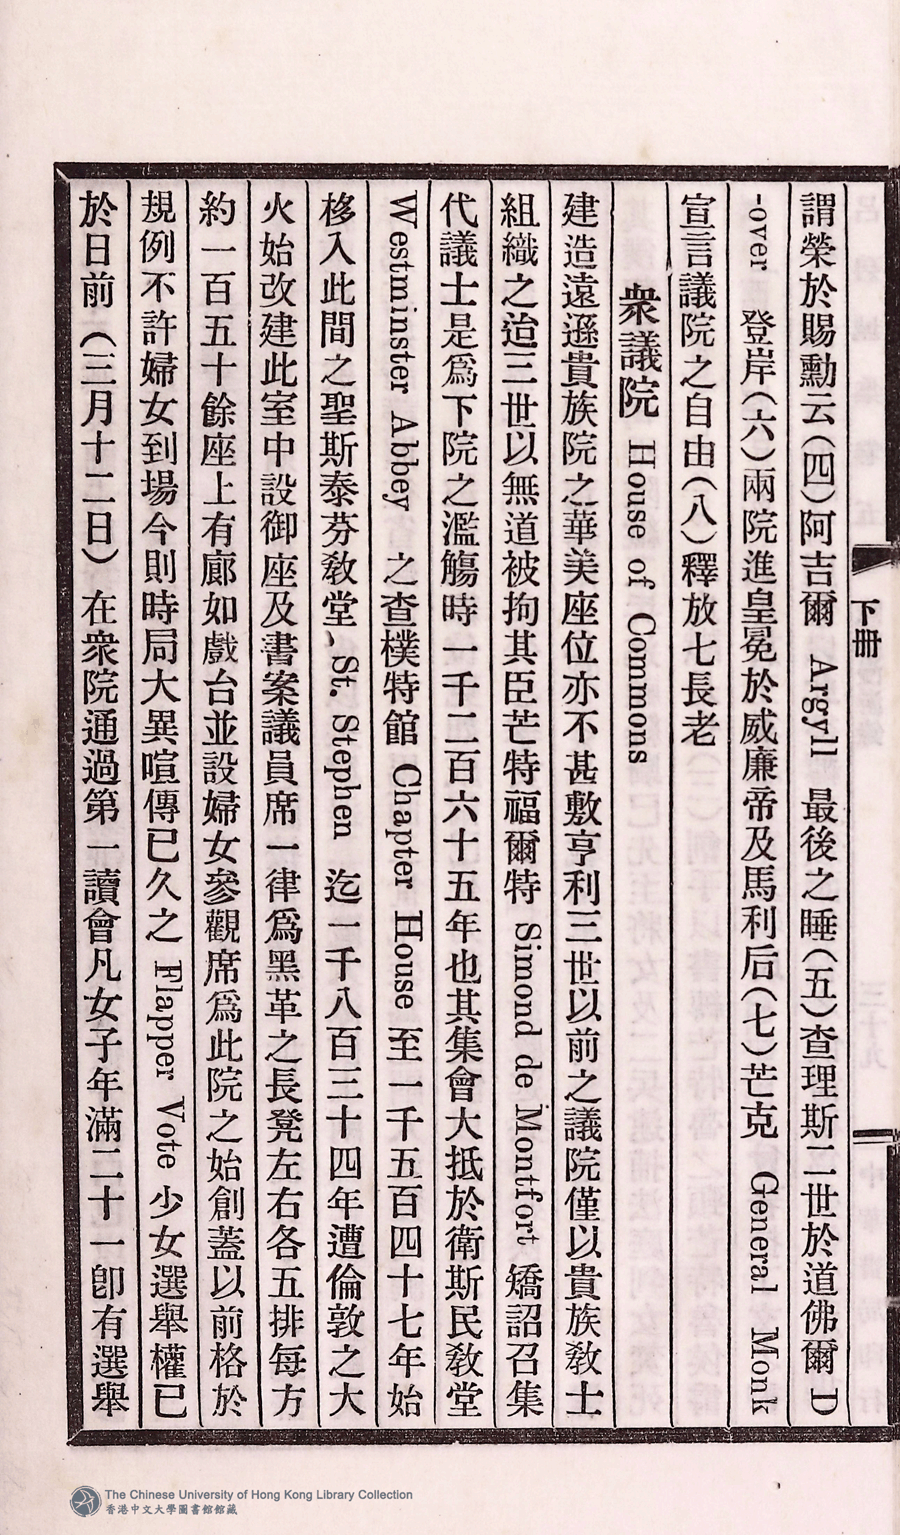 下冊
謂榮於賜勳云(四)阿吉爾 Argyll 最後之睡(五)查理斯二世於道佛爾 D
-over 登岸(六)兩院進皇冕於威廉帝及馬利后(七)芒克 General Monk
宣言議院之自由(八)釋放七長老
衆議院 House of Commons
建造遠遜貴族院之華美座位亦不甚敷亨利三世以前之議院僅以貴族敎士
組織之迨三世以無道被拘其臣芒特福爾特 Simond de Montfort 矯詔召集
代議士是爲下院之濫觴時一千二百六十五年也其集會大抵於衛斯民敎堂
Westminster Abbey 之查樸特館 Chapter House 至一千五百四十七年始
移入此間之聖斯泰芬敎堂、St. Stephen 迄一千八百三十四年遭倫敦之大
火始改建此室中設御座及書案議員席一律爲黑革之長凳左右各五排每方
約一百五十餘座上有廊如戲台並設婦女參觀席爲此院之始創蓋以前格於
規例不許婦女到場今則時局大異喧傳已久之 Flapper Vote 少女選舉權已
於日前(三月十二日)在衆院通過第一讀會凡女子年滿二十一卽有選舉
The Chinese University of Hong Kong Library Collection
香港中文大學圖書館館藏